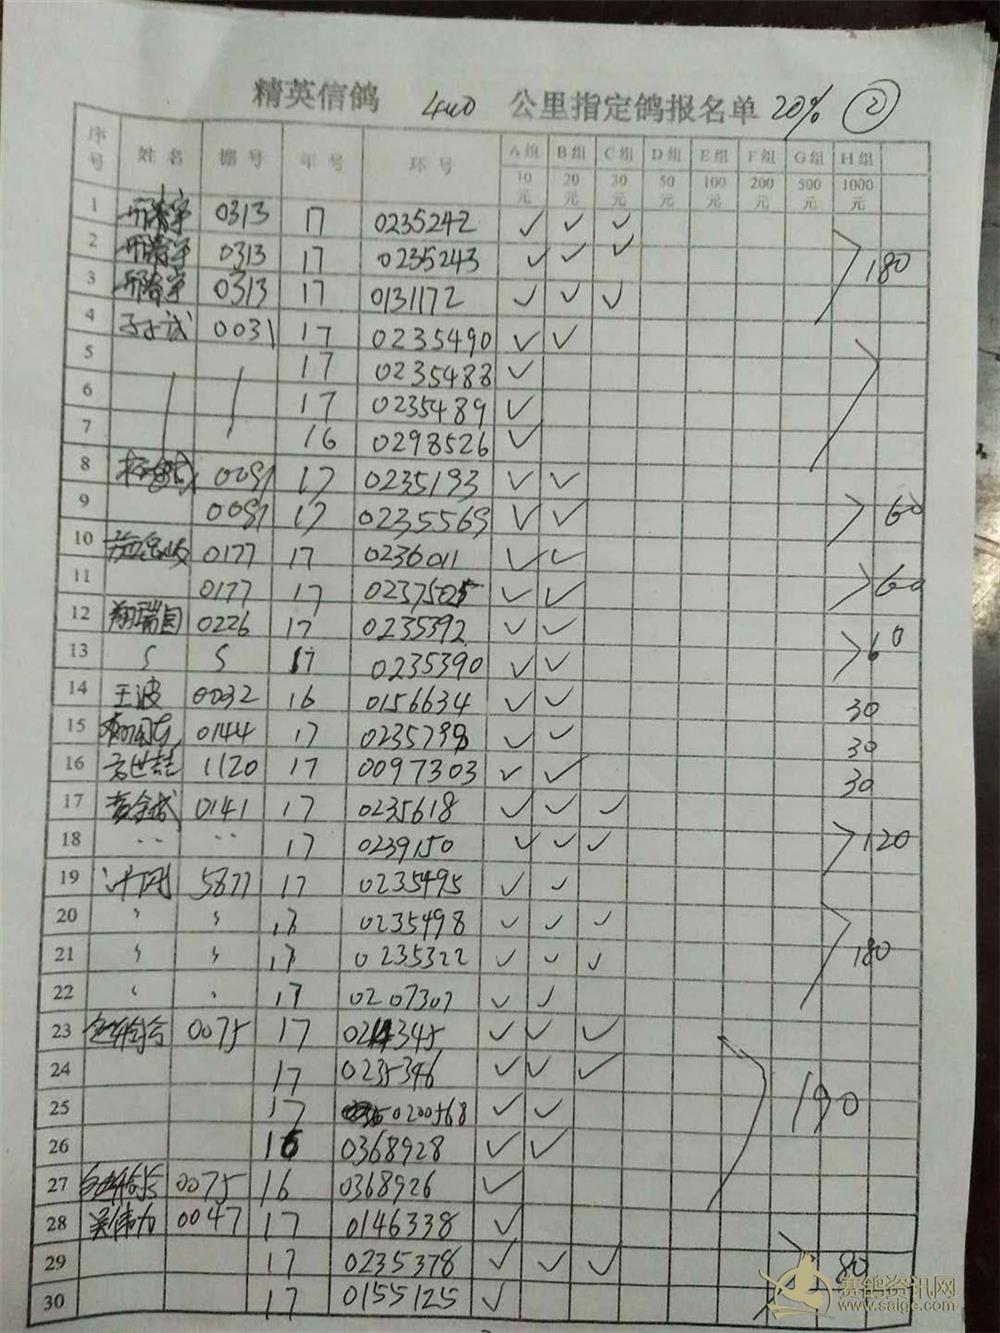 精英信鸽 400 公里指定鸽报名单 20% ②
序号 姓名 棚号 年号 环号 A组 B组 C组 D组 E组 F组 G组 H组
10元 20元 30元 50元 100元 200元 500元 1000元
1 0313 17 0235242 ✓ ✓ ✓
2 0313 17 0235243 ✓ ✓ ✓ 180
3 0313 17 0131172 ✓ ✓ ✓
4 0031 17 0235490 ✓ ✓
5 17 0235488 ✓
6 17 0235489 ✓
7 16 0298526 ✓
8 0091 17 0235193 ✓ ✓
9 0091 17 0235569 ✓ ✓ 60
10 0177 17 0236011 ✓ ✓
11 0177 17 0237505 ✓ ✓ 60
12 翔瑞国 0226 17 0235392 ✓ ✓
13 17 0235390 ✓ ✓ 60
14 王波 0032 16 0156634 ✓ ✓ 30
15 0144 17 0235799 ✓ ✓ 30
16 1120 17 0097303 ✓ ✓ 30
17 黄金成 0141 17 0235618 ✓ ✓ ✓
18 17 0239150 ✓ ✓ ✓ 120
19 5877 17 0235495 ✓ ✓
20 17 0235498 ✓ ✓ ✓
21 17 0235322 ✓ ✓ ✓ 180
22 17 0207307 ✓ ✓
23 0075 17 0214345 ✓ ✓ ✓
24 17 0235346 ✓ ✓ ✓
25 17 0200568 ✓ ✓ 190
26 16 0368928 ✓ ✓
27 0075 16 0368926 ✓
28 吴伟力 0047 17 0146338 ✓
29 17 0235378 ✓ ✓ ✓ 80
30 17 0155125 ✓
赛鸽资讯网
www.saige.com